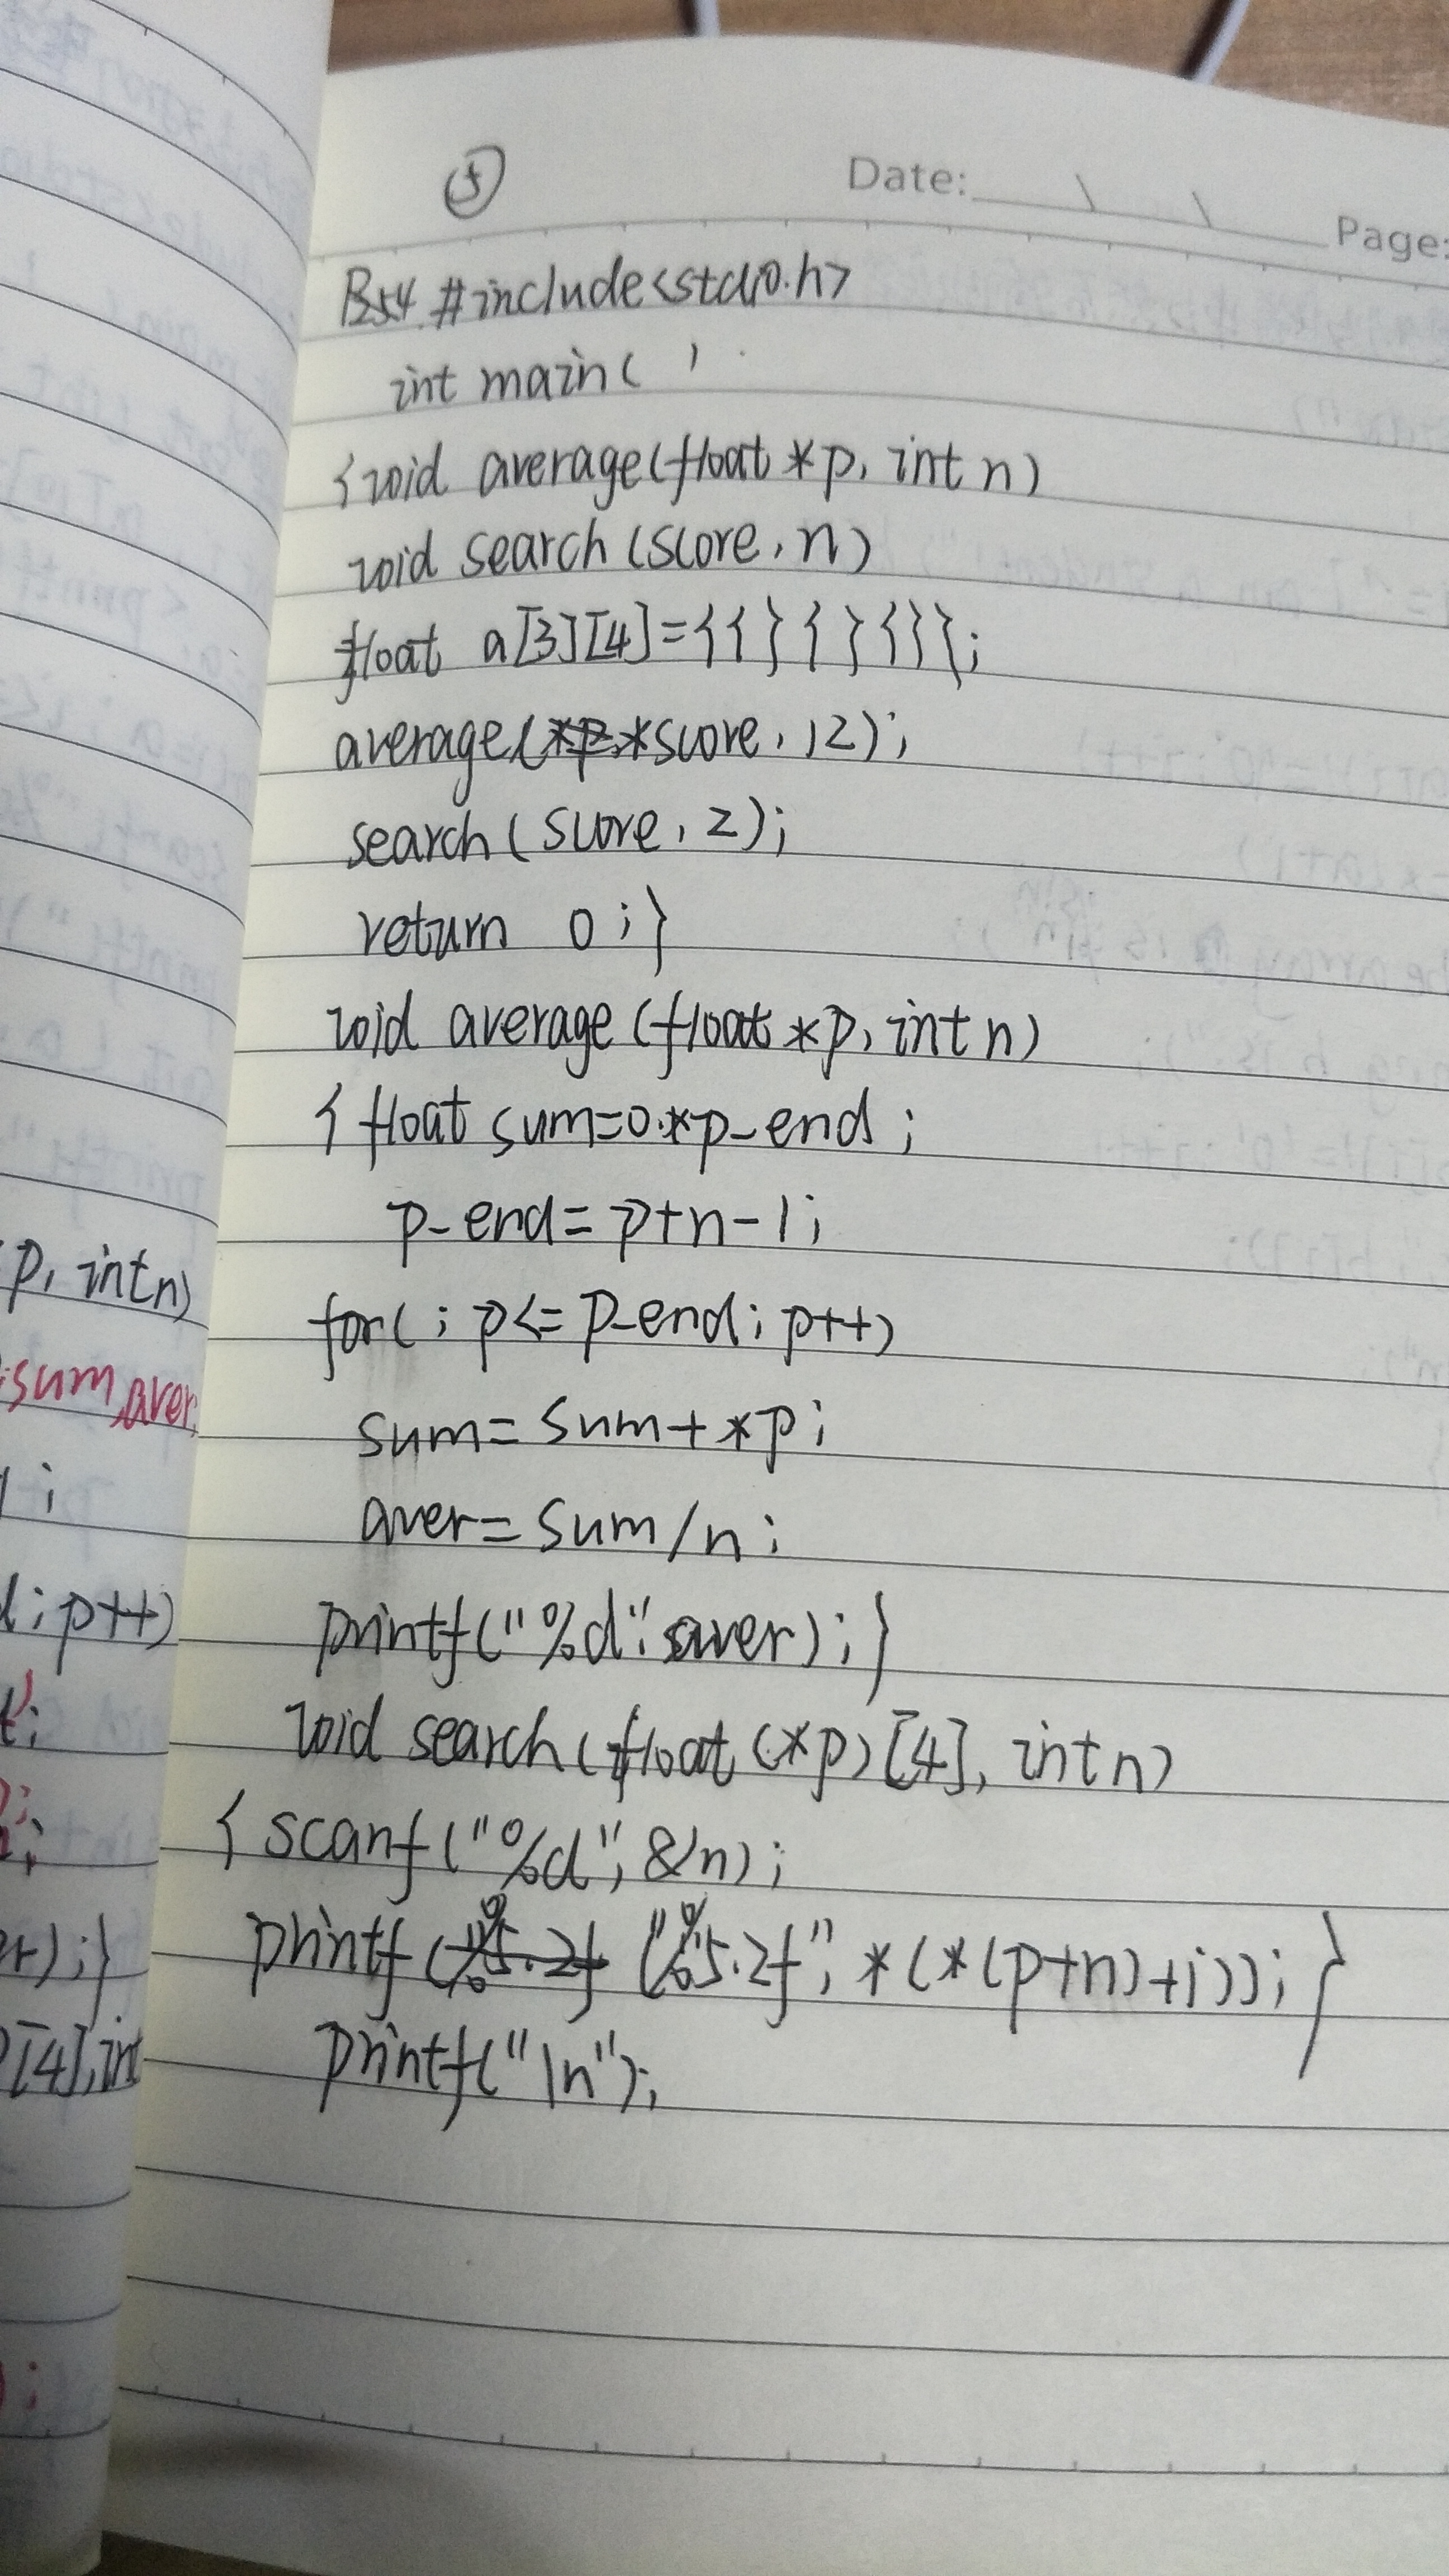 p, int n)
sum, aver
;
; p++)
;
;
) ; }
[4], int
;
⑤
Date:
Page:
P254 #include<stdio.h>
int main( )
{void average(float *p, int n)
void search (score, n)
float a[3][4]={{ } { } { }};
average(*score, 12);
search( score, 2);
return 0 ; }
void average (float *p, int n)
{ float sum=0.*p_end ;
p_end= p+n-1;
for( ; p<= p_end; p++)
sum= sum+ *p;
aver= sum/n ;
printf("%d", aver) ; }
void search (float (*p) [4], int n)
{ scanf ("%d", &n) ;
printf ("%5.2f", *(*(p+n)+i)); }
printf("\n");